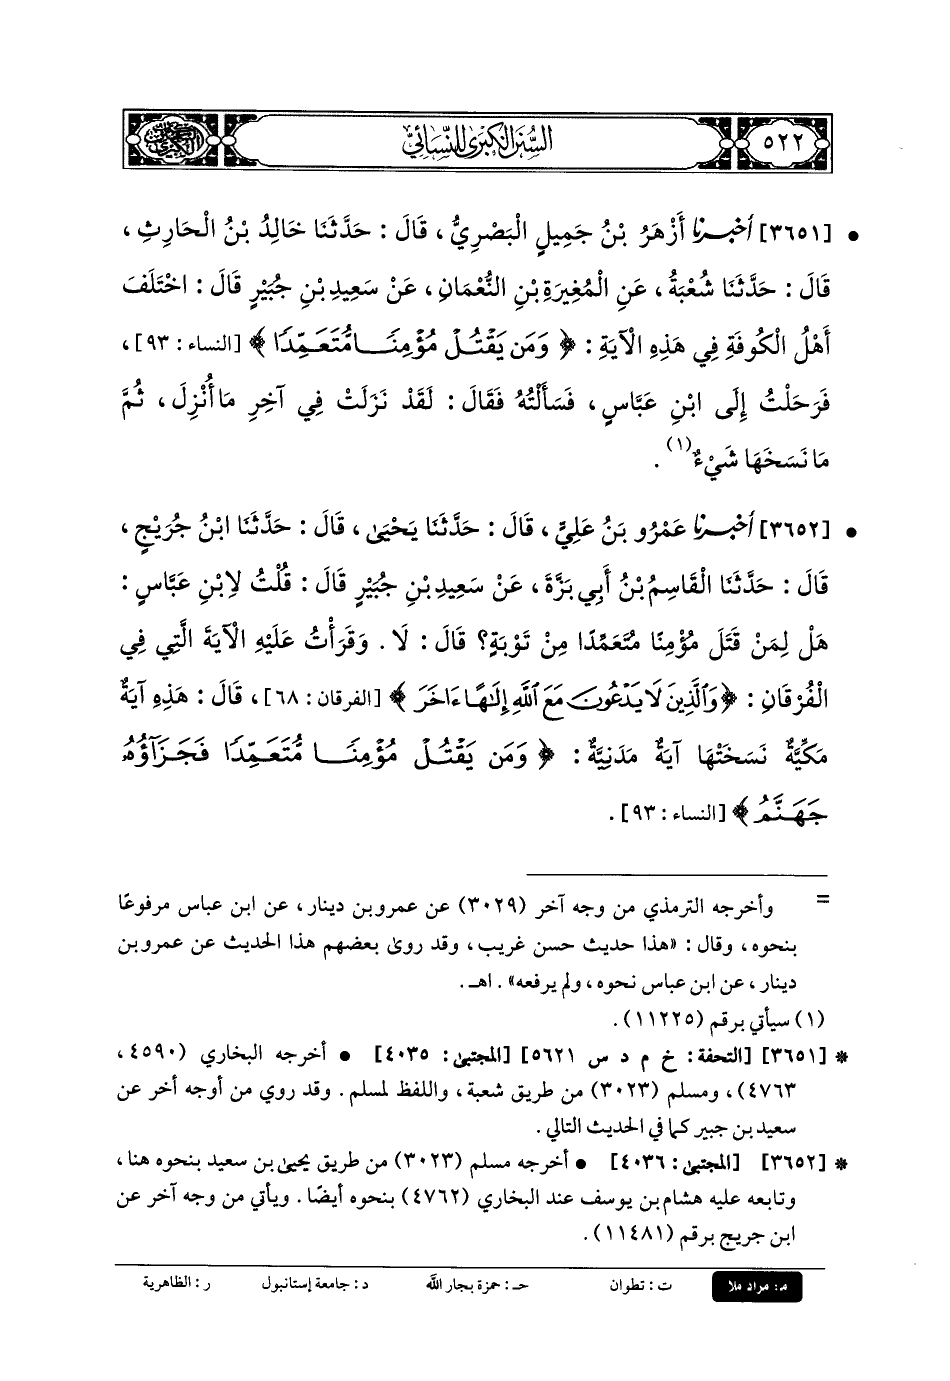 ٥٢٢
السنن الكبرى للنسائي
• [٣٦٥١] أخبرنا أَزْهَرُ بْنُ جَمِيلٍ الْبَصْرِيُّ، قَالَ: حَدَّثَنَا خَالِدُ بْنُ الْحَارِثِ،
قَالَ: حَدَّثَنَا شُعْبَةُ، عَنِ الْمُغِيرَةِ بْنِ النُّعْمَانِ، عَنْ سَعِيدِ بْنِ جُبَيْرٍ قَالَ: اخْتَلَفَ
أَهْلُ الْكُوفَةِ فِي هَذِهِ الْآيَةِ: ﴿ وَمَن يَقْتُلْ مُؤْمِنًا مُّتَعَمِّدًا ﴾ [النساء: ٩٣]،
فَرَحَلْتُ إِلَى ابْنِ عَبَّاسٍ، فَسَأَلْتُهُ فَقَالَ: لَقَدْ نَزَلَتْ فِي آخِرِ مَا أُنْزِلَ، ثُمَّ
مَا نَسَخَهَا شَيْءٌ(١).
• [٣٦٥٢] أخبرنا عَمْرُو بْنُ عَلِيٍّ، قَالَ: حَدَّثَنَا يَحْيَى، قَالَ: حَدَّثَنَا ابْنُ جُرَيْجٍ،
قَالَ: حَدَّثَنَا الْقَاسِمُ بْنُ أَبِي بَزَّةَ، عَنْ سَعِيدِ بْنِ جُبَيْرٍ قَالَ: قُلْتُ لِابْنِ عَبَّاسٍ:
هَلْ لِمَنْ قَتَلَ مُؤْمِنًا مُتَعَمِّدًا مِنْ تَوْبَةٍ؟ قَالَ: لَا. وَقَرَأْتُ عَلَيْهِ الْآيَةَ الَّتِي فِي
الْفُرْقَانِ: ﴿وَالَّذِينَ لَا يَدْعُونَ مَعَ اللَّهِ إِلَٰهًا ءَاخَرَ ﴾ [الفرقان: ٦٨]، قَالَ: هَذِهِ آيَةٌ
مَكِّيَّةٌ نَسَخَتْهَا آيَةٌ مَدَنِيَّةٌ: ﴿ وَمَن يَقْتُلْ مُؤْمِنًا مُّتَعَمِّدًا فَجَزَآؤُهُ
جَهَنَّمُ ﴾ [النساء: ٩٣].
= وأخرجه الترمذي من وجه آخر (٣٠٢٩) عن عمرو بن دينار، عن ابن عباس مرفوعًا
بنحوه، وقال: «هذا حديث حسن غريب، وقد روى بعضهم هذا الحديث عن عمرو بن
دينار، عن ابن عباس نحوه، ولم يرفعه». اهـ.
(١) سيأتي برقم (١١٢٢٥).
* [٣٦٥١] [التحفة: خ م د س ٥٦٢١] [المجتبى: ٤٠٣٥] • أخرجه البخاري (٤٥٩٠،
٤٧٦٣)، ومسلم (٣٠٢٣) من طريق شعبة، واللفظ لمسلم. وقد روي من أوجه أخر عن
سعيد بن جبير كما في الحديث التالي.
* [٣٦٥٢] [المجتبى: ٤٠٣٦] • أخرجه مسلم (٣٠٢٣) من طريق يحيى بن سعيد بنحوه هنا،
وتابعه عليه هشام بن يوسف عند البخاري (٤٧٦٢) بنحوه أيضًا. ويأتي من وجه آخر عن
ابن جريج برقم (١١٤٨١).
م: مراد ملا ت: تطوان حـ: حمزة بجار الله د: جامعة إستانبول ر: الظاهرية